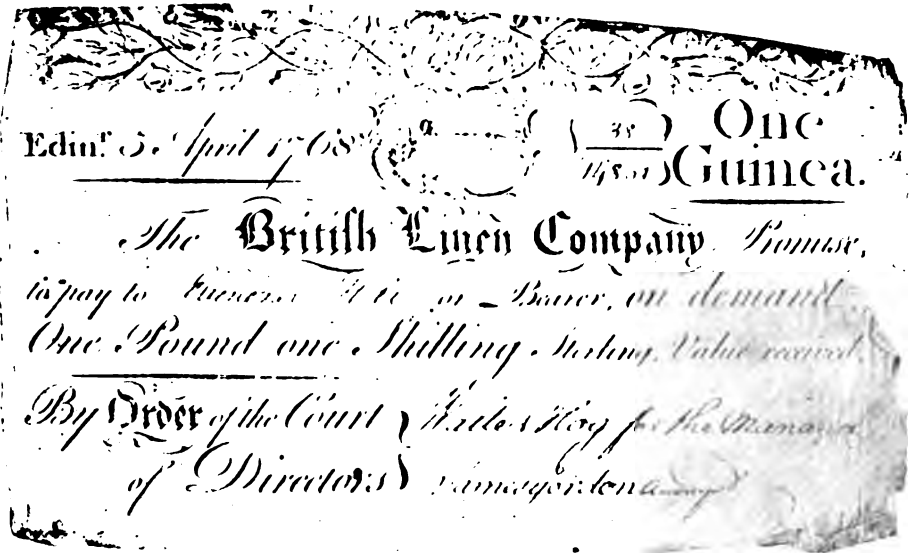 Edinr. 5 April 1768
38
One
Guinea.
The Britiſh Linen Company Promise,
to pay to Ebenezer or Bearer, on demand
One Pound one Shilling Sterling, Value received.
By Order of the Court
of Directors
Walter Hog for the Manager
James Gordon